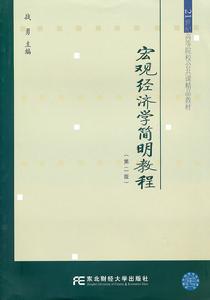 21世纪高等院校公共课精品教材
战勇 主编
宏观经济学简明教程
(第二版)
东北财经大学出版社
Dongbei University of Finance & Economics Press